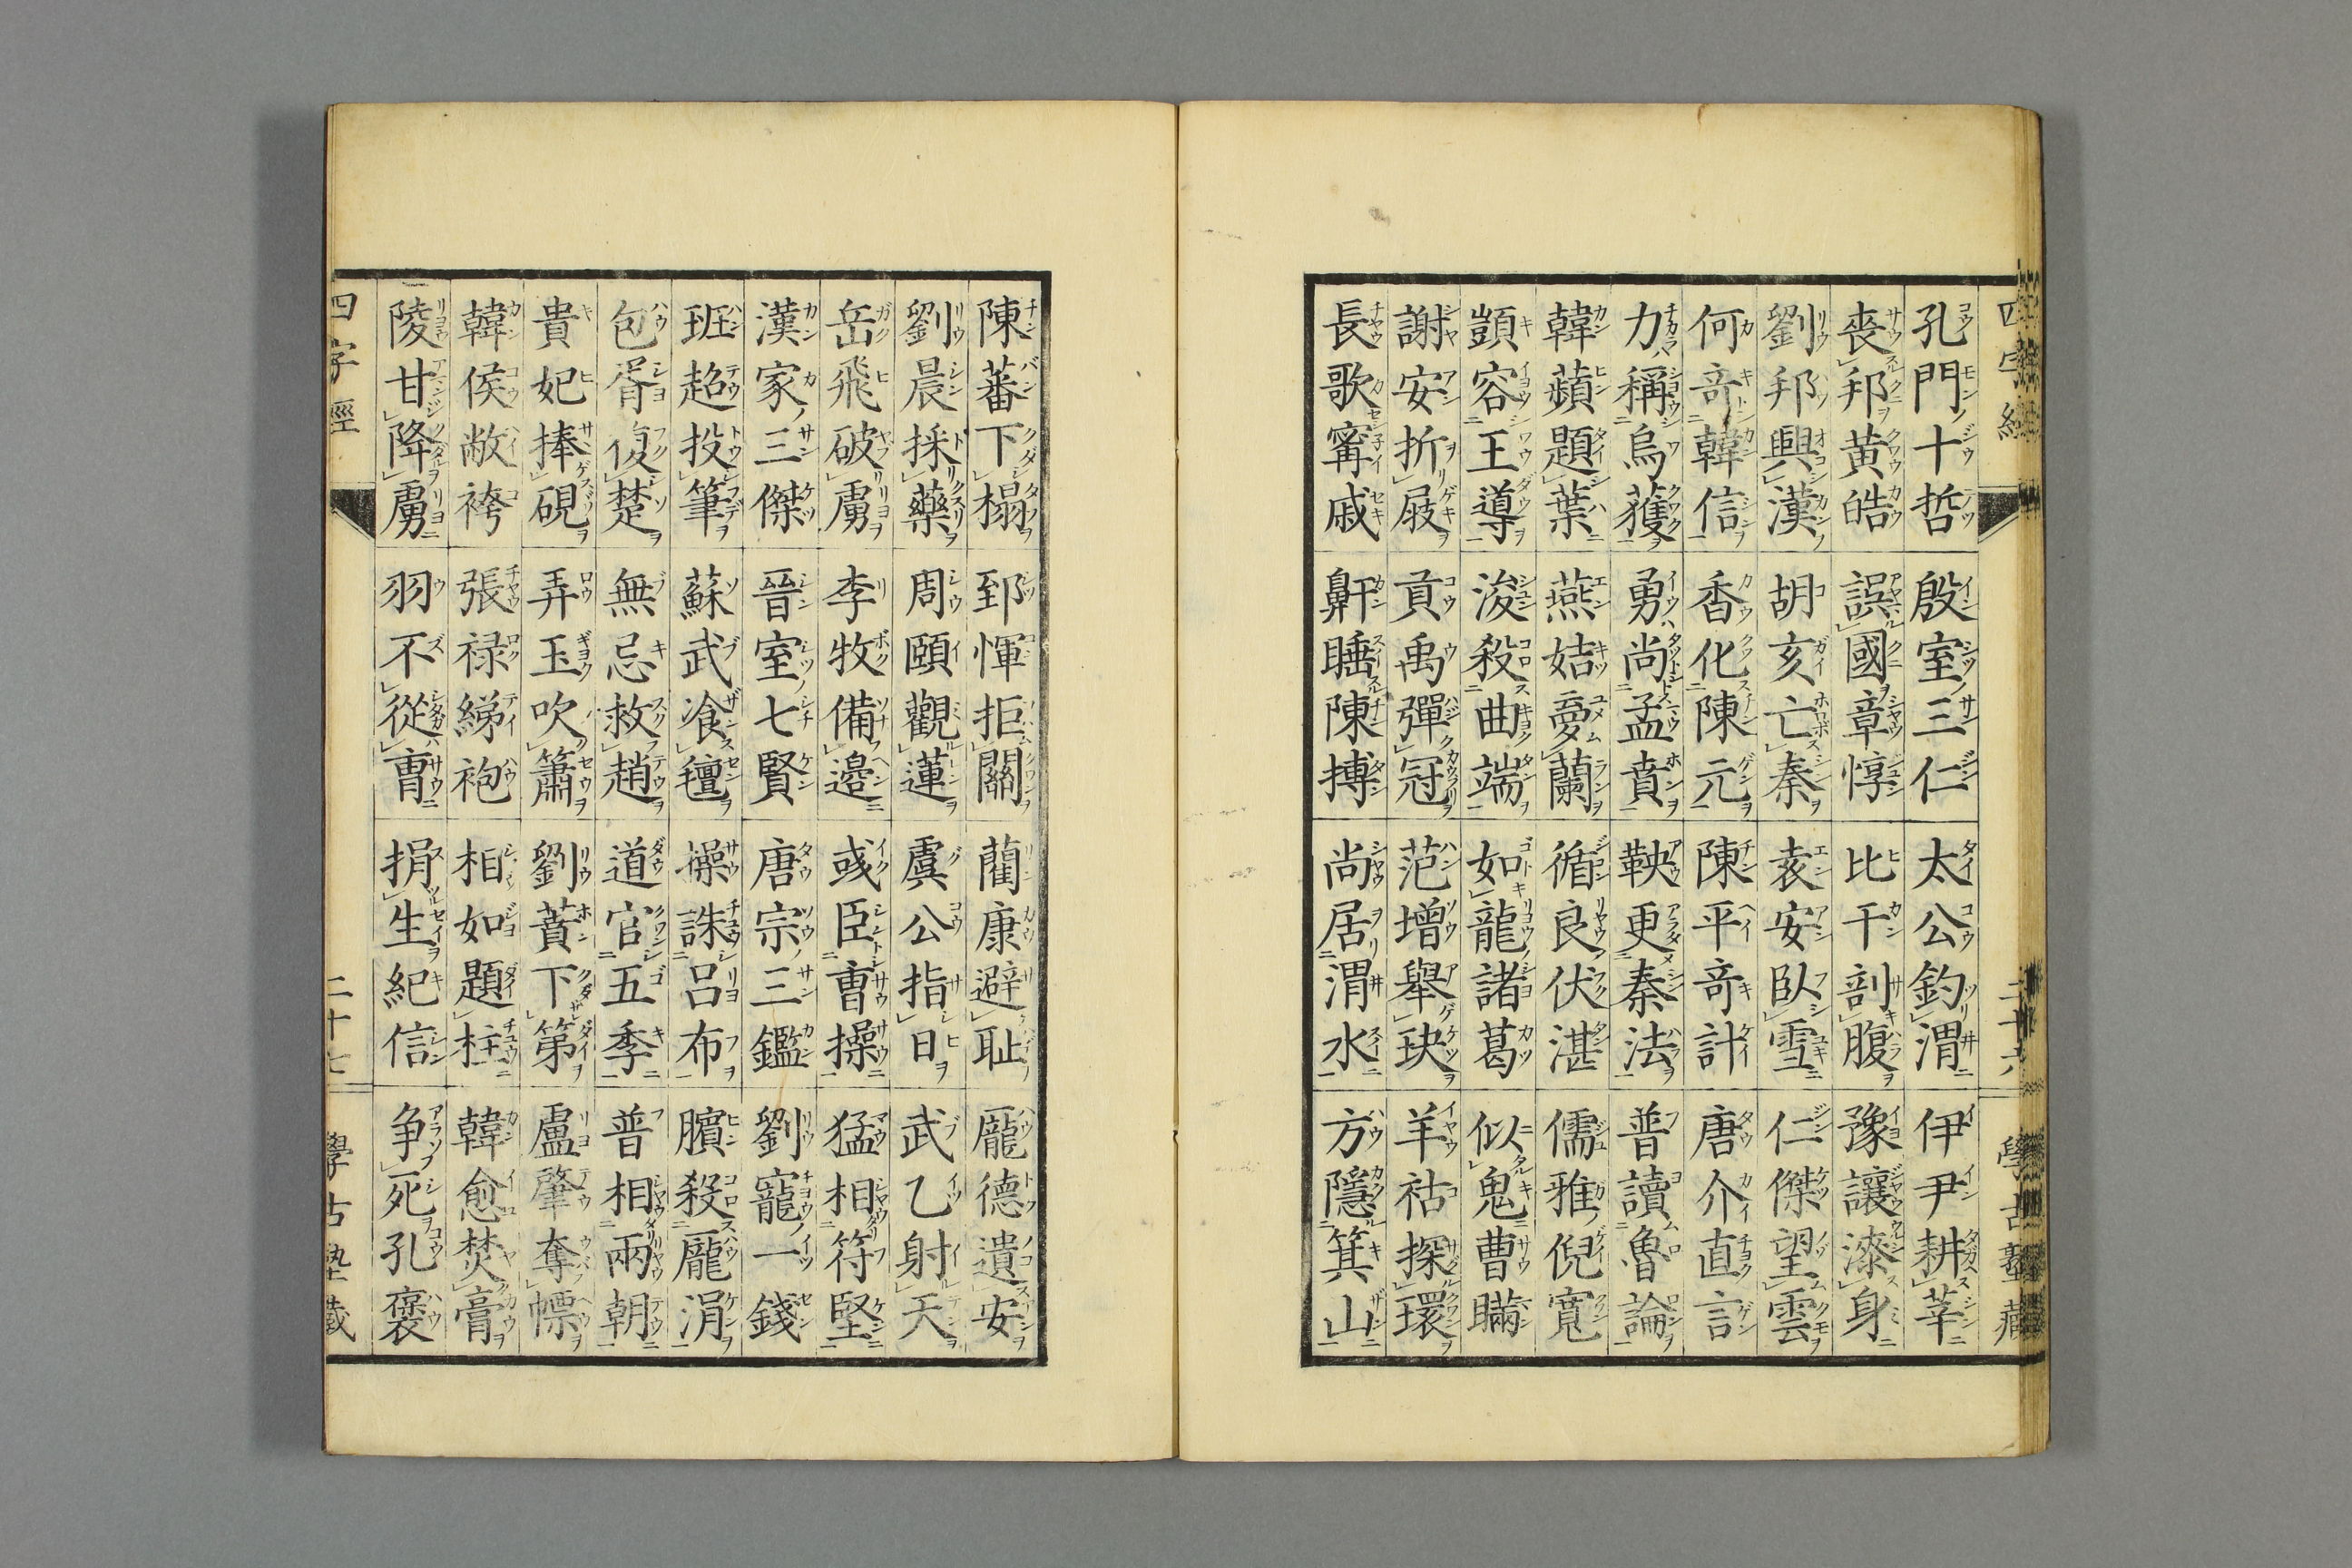 四字經
二十六
學古塾藏
孔門十哲 殷室三仁 太公釣渭 伊尹耕莘
喪邦黃皓 誤國章惇 比干剖腹 豫讓漆身
劉邦興漢 胡亥亡秦 袁安臥雪 仁傑望雲
何奇韓信 香化陳元 陳平奇計 唐介直言
力稱烏獲 勇尚孟賁 鞅更秦法 普讀魯論
韓蘋題葉 燕姞夢蘭 循良伏湛 儒雅倪寬
顗容王導 浚殺曲端 如龍諸葛 似鬼曹瞞
謝安折屐 貢禹彈冠 范增舉玦 羊祜探環
長歌寗戚 鼾睡陳摶 尚居渭水 方隱箕山
陳蕃下榻 郅惲拒關 藺康避耻 龐德遺安
劉晨採藥 周頤觀蓮 虞公指日 武乙射天
岳飛破虜 李牧備邊 彧臣曹操 猛相符堅
漢家三傑 晉室七賢 唐宗三鑑 劉寵一錢
班超投筆 蘇武飡氊 操誅呂布 臏殺龐涓
包胥復楚 無忌救趙 道官五季 普相兩朝
貴妃捧硯 弄玉吹簫 劉蕡下第 盧肇奪幖
韓侯敝袴 張祿綈袍 相如題柱 韓愈焚膏
陵甘降虜 羽不從曹 捐生紀信 爭死孔褒
四字經
二十七
學古塾藏